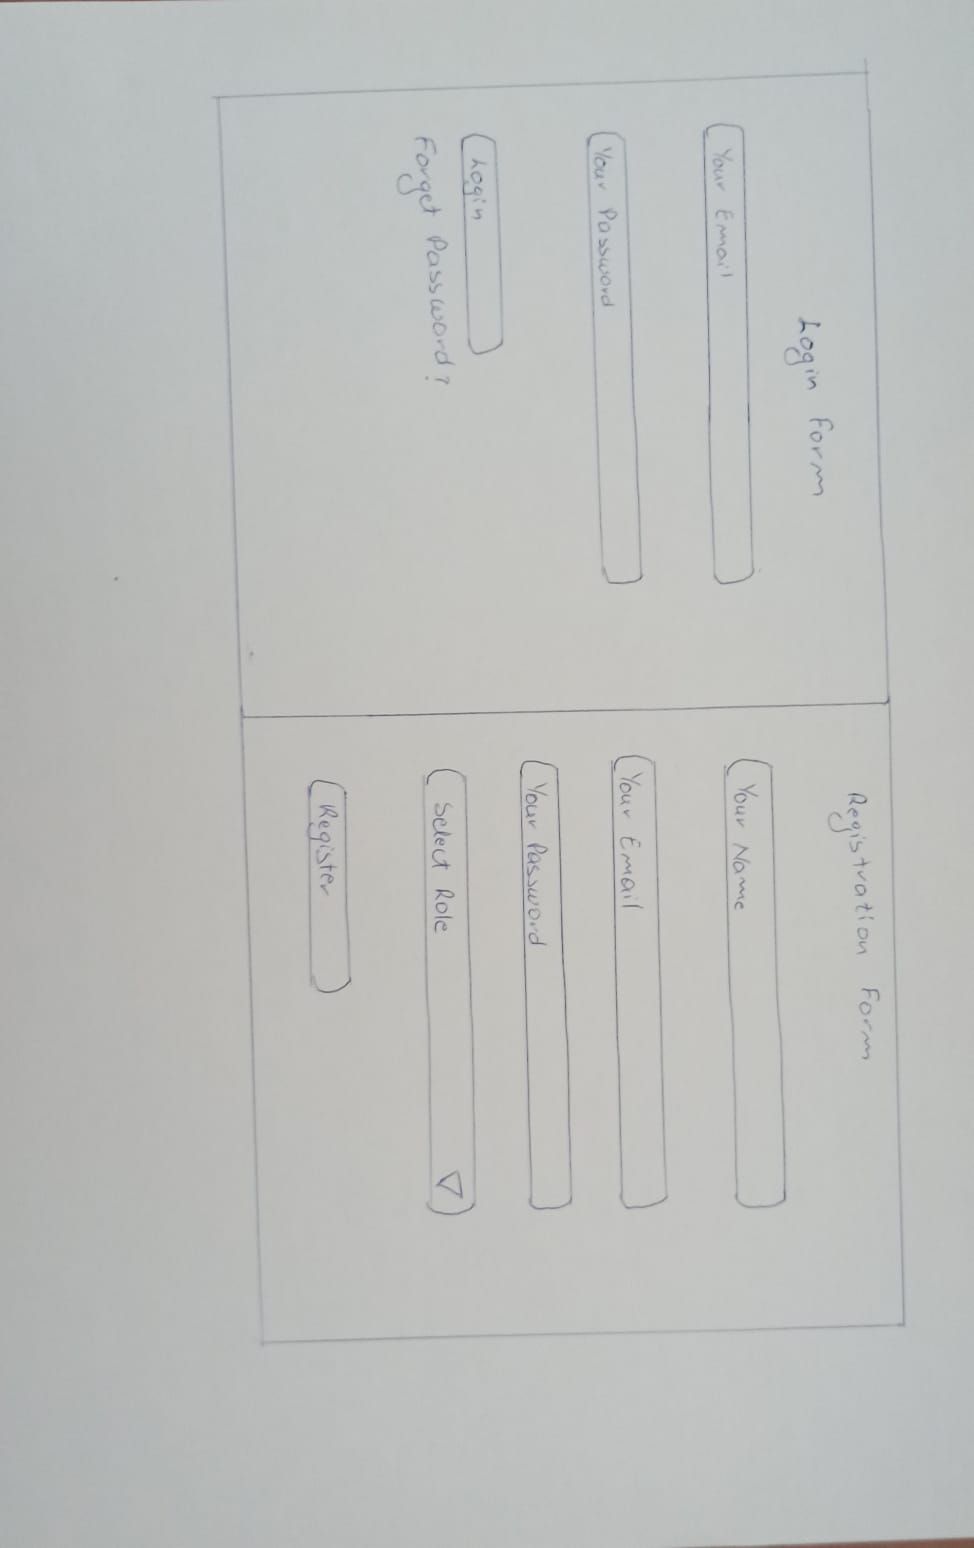 Login Form
Your Email
Your Password
Login
Forget Password?
Registration Form
Your Name
Your Email
Your Password
Select Role
Register